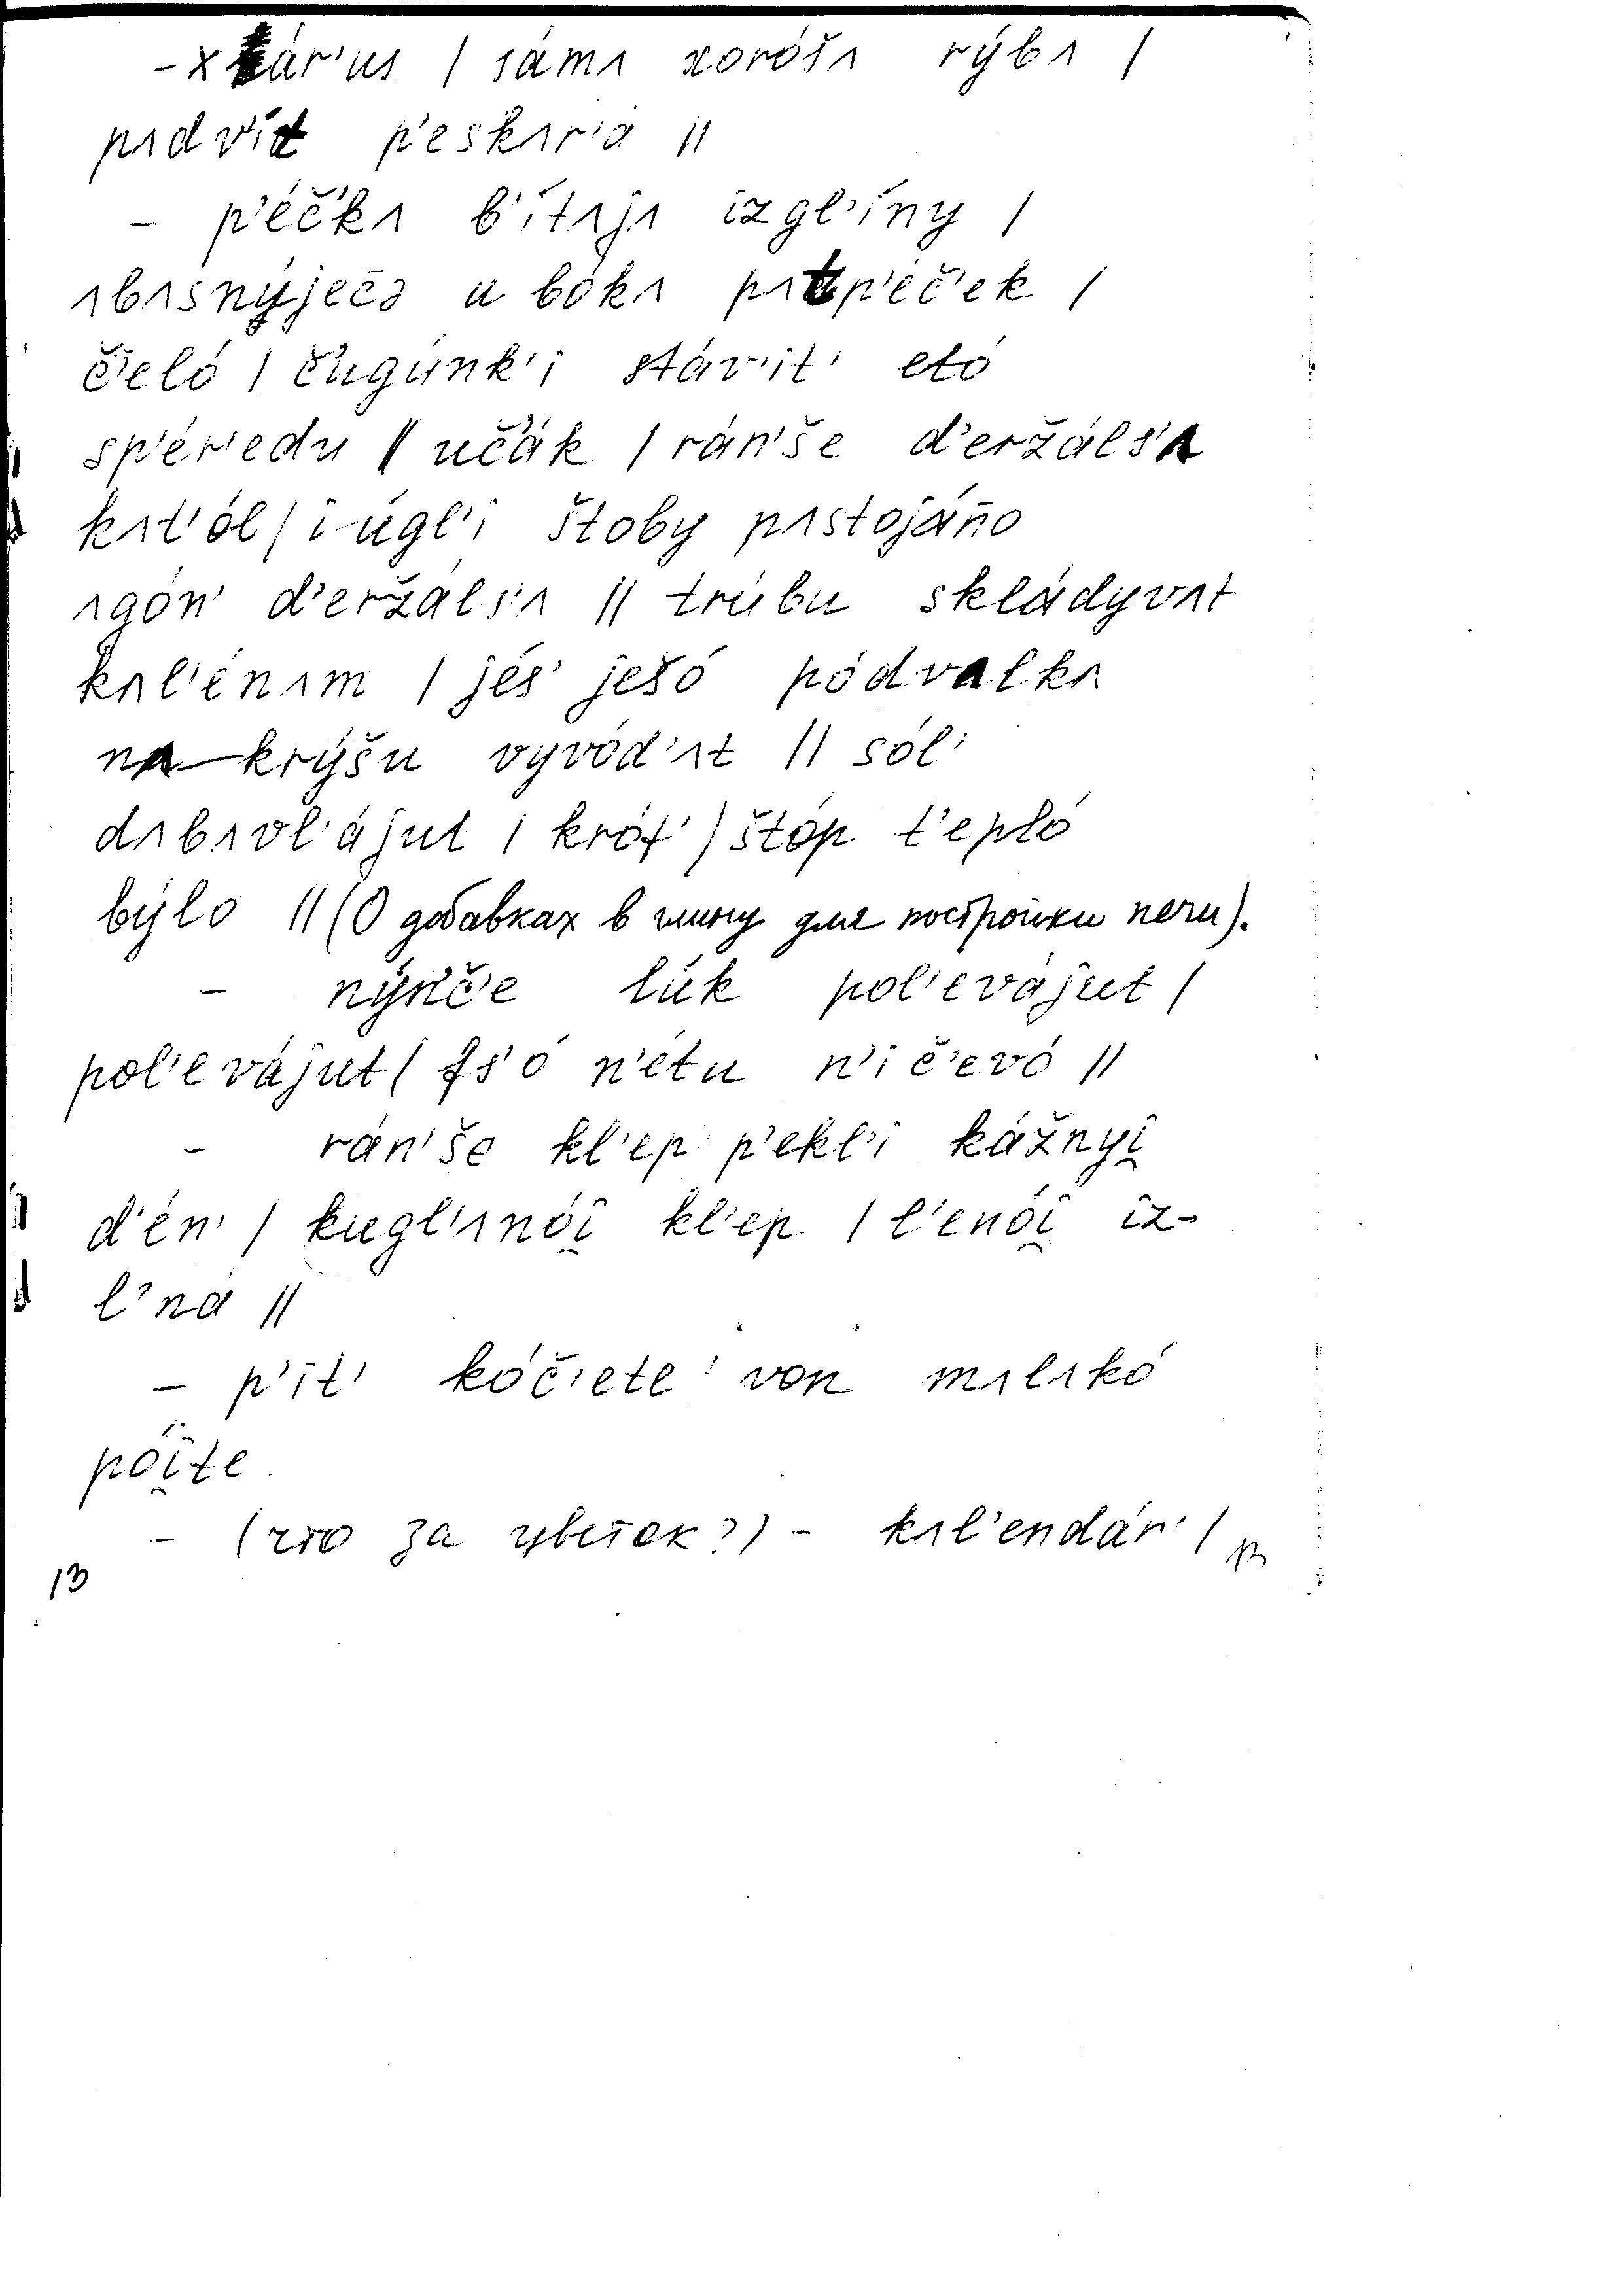 - xár'us / sámʌ xoróšʌ rýbʌ /
pʌdv'ít p'eskʌr'á //
- p'éč'kʌ b'ítʌjʌ izgl'íny /
ʌbʌsnýječə u bókʌ pʌtp'éč'ek /
č'eló / č'ugúnk'i stáv'it' etó
sp'ér'edu // uč'ák / rán'še d'eržáls'ʌ
kʌt'ól / i-úgl'i štoby pʌstojáñо
ʌgón' d'eržáls'ʌ // trúbu skládyvʌt
kʌl'énʌm / jés' ješó pódvalkʌ
na-krýšu vyvód'ʌt // sól'
dʌbʌvl'ájut / króf' / štóp t'epló
býlo // (О добавках в глину для постройки печи).
- nýn'č'e lúk pol'evájut /
pol'evájut / fs'ó n'étu n'ič'evó //
- rán'še kl'ep p'ekl'i kážnyi̯
d'én' / kugl'ʌnói̯ kl'ep / l'enói̯ iz-
l'ná //
- p'ít' kóč'ete von mʌlʌkó
pói̯te
- (что за цветок?) - kʌl'endár' /
13